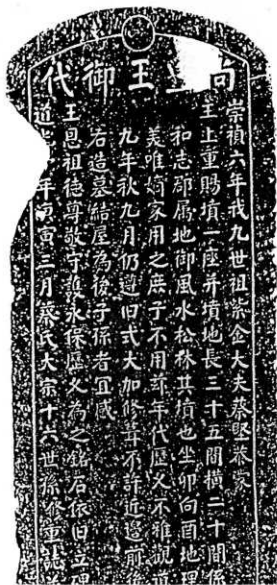 尚王御代
崇禎六年我九世祖紫金大夫蔡堅恭蒙
主上重賜墳一座并墳地長三十五間横二十間係
和志郡属地御風水松林其墳也坐卯向酉地理
美唯嫡家用之庶子不用年代歴久不雅観道
九年秋九月仍遵旧式大加修葺不許近邉前後
右造墓結屋為後子孫者宜感
王恩祖德尊敬守護永保歴久為之銘石依旧立碑
道年庚寅三月蔡氏大宗十六世孫修重誌